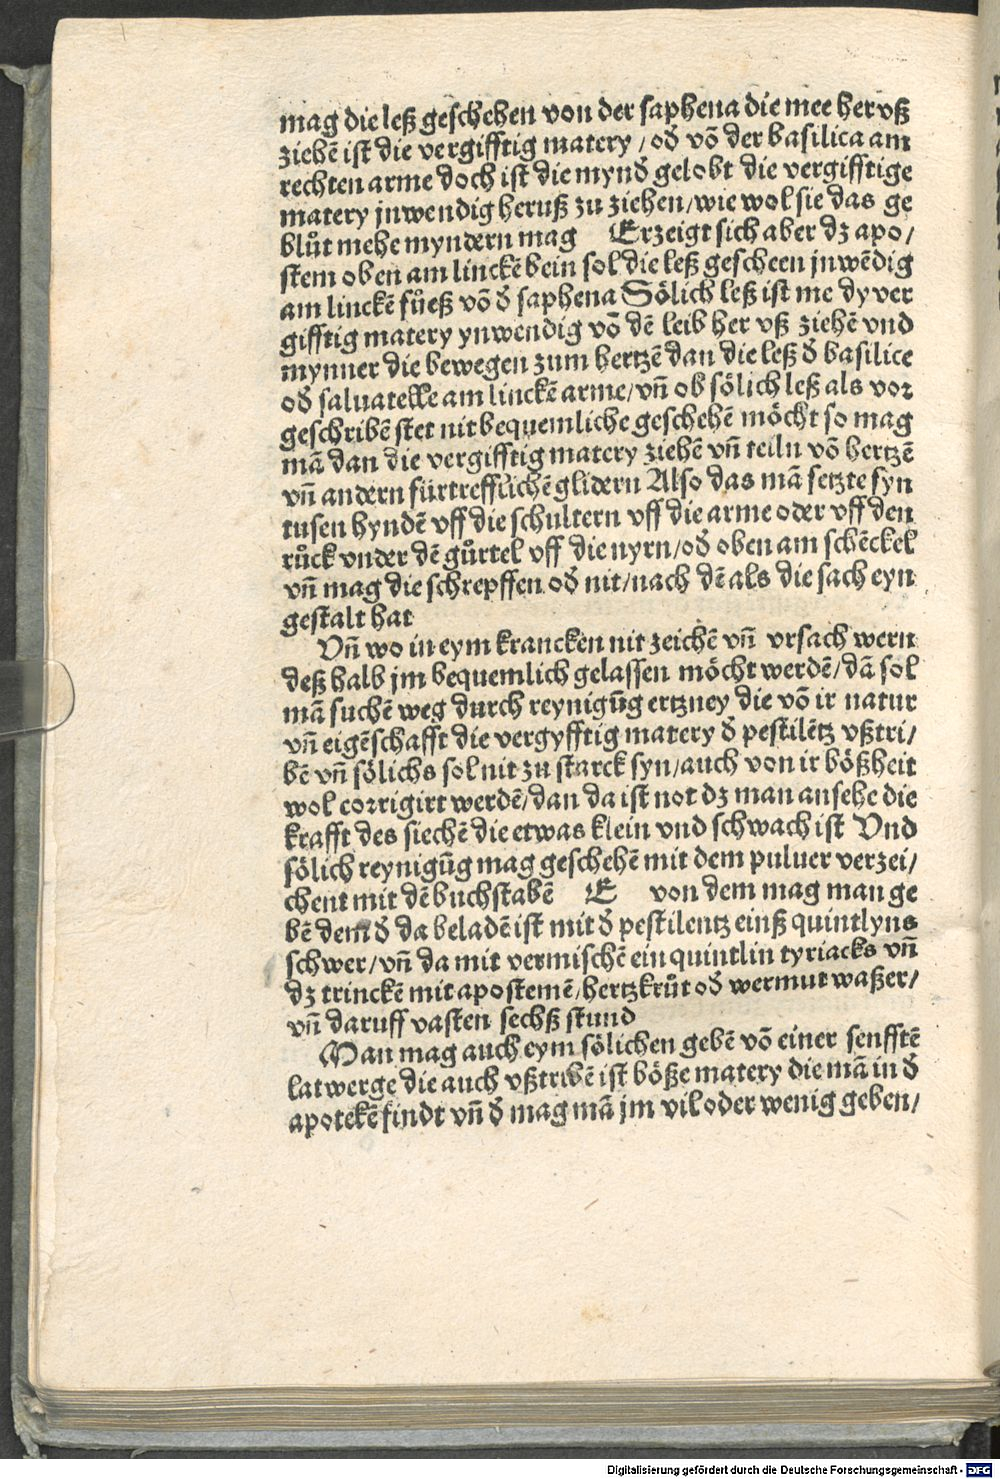 mag die leß geschehen von der saphena die mee her vß
ziehē ist die vergifftig matery / od̄ vō der basilica am
rechten arme doch ist die mynd̄ gelobt die vergifftige
matery jnwendig heruß zu ziehen/wie wol sie das ge
blůt mehe myndern mag Erzeigt sich aber dz apo/
stem oben am linckē bein sol die leß gescheen jnwēdig
am linckē fůeß vō d̄ saphena Sölich leß ist me dy ver
gifftig matery ynwendig vō dē leib her vß ziehē vnd
mynner die bewegen zum hertzē dan die leß d̄ basilice
od̄ saluatelle am linckē arme/vn̄ ob sölich leß als vor
geschribē stet nit bequemliche geschehē möcht so mag
mā dan die vergifftig matery ziehē vn̄ teiln vō hertzē
vn̄ andern fürtrefflichē glidern Also das mā setzte syn
tusen hyndē vff die schultern vff die arme oder vff den
růck vnder dē gůrtel vff die nyrn/od̄ oben am schēckel
vn̄ mag die schrepffen od̄ nit/nach dē als die sach eyn
gestalt hat
Vn̄ wo in eym krancken nit zeichē vn̄ vrsach wern
deß halb jm bequemlich gelassen möcht werdē/dā sol
mā suchē weg durch reynigūg ertzney die vō ir natur
vn̄ eigēschafft die vergyfftig matery d̄ pestilētz vßtri/
bē vn̄ sölichs sol nit zu starck syn/auch von ir bößheit
wol corrigirt werdē/dan da ist not dz man ansehe die
krafft des siechē die etwas klein vnd schwach ist Vnd
sölich reynigūg mag geschehē mit dem puluer verzei/
chent mit dē buchstabē E von dem mag man ge
bē dem d̄ da beladē ist mit d̄ pestilentz einß quintlyns
schwer/vn̄ da mit vermischē ein quintlin tyriacks vn̄
dz trinckē mit apostemē/hertzkrůt od̄ wermut waßer/
vn̄ daruff vasten sechß stund
Man mag auch eym sölichen gebē vō einer senfftē
latwerge die auch vßtribē ist böße matery die mā in d̄
apotekē findt vn̄ d̄ mag mā jm vil oder wenig geben/
Digitalisierung gefördert durch die Deutsche Forschungsgemeinschaft - DFG